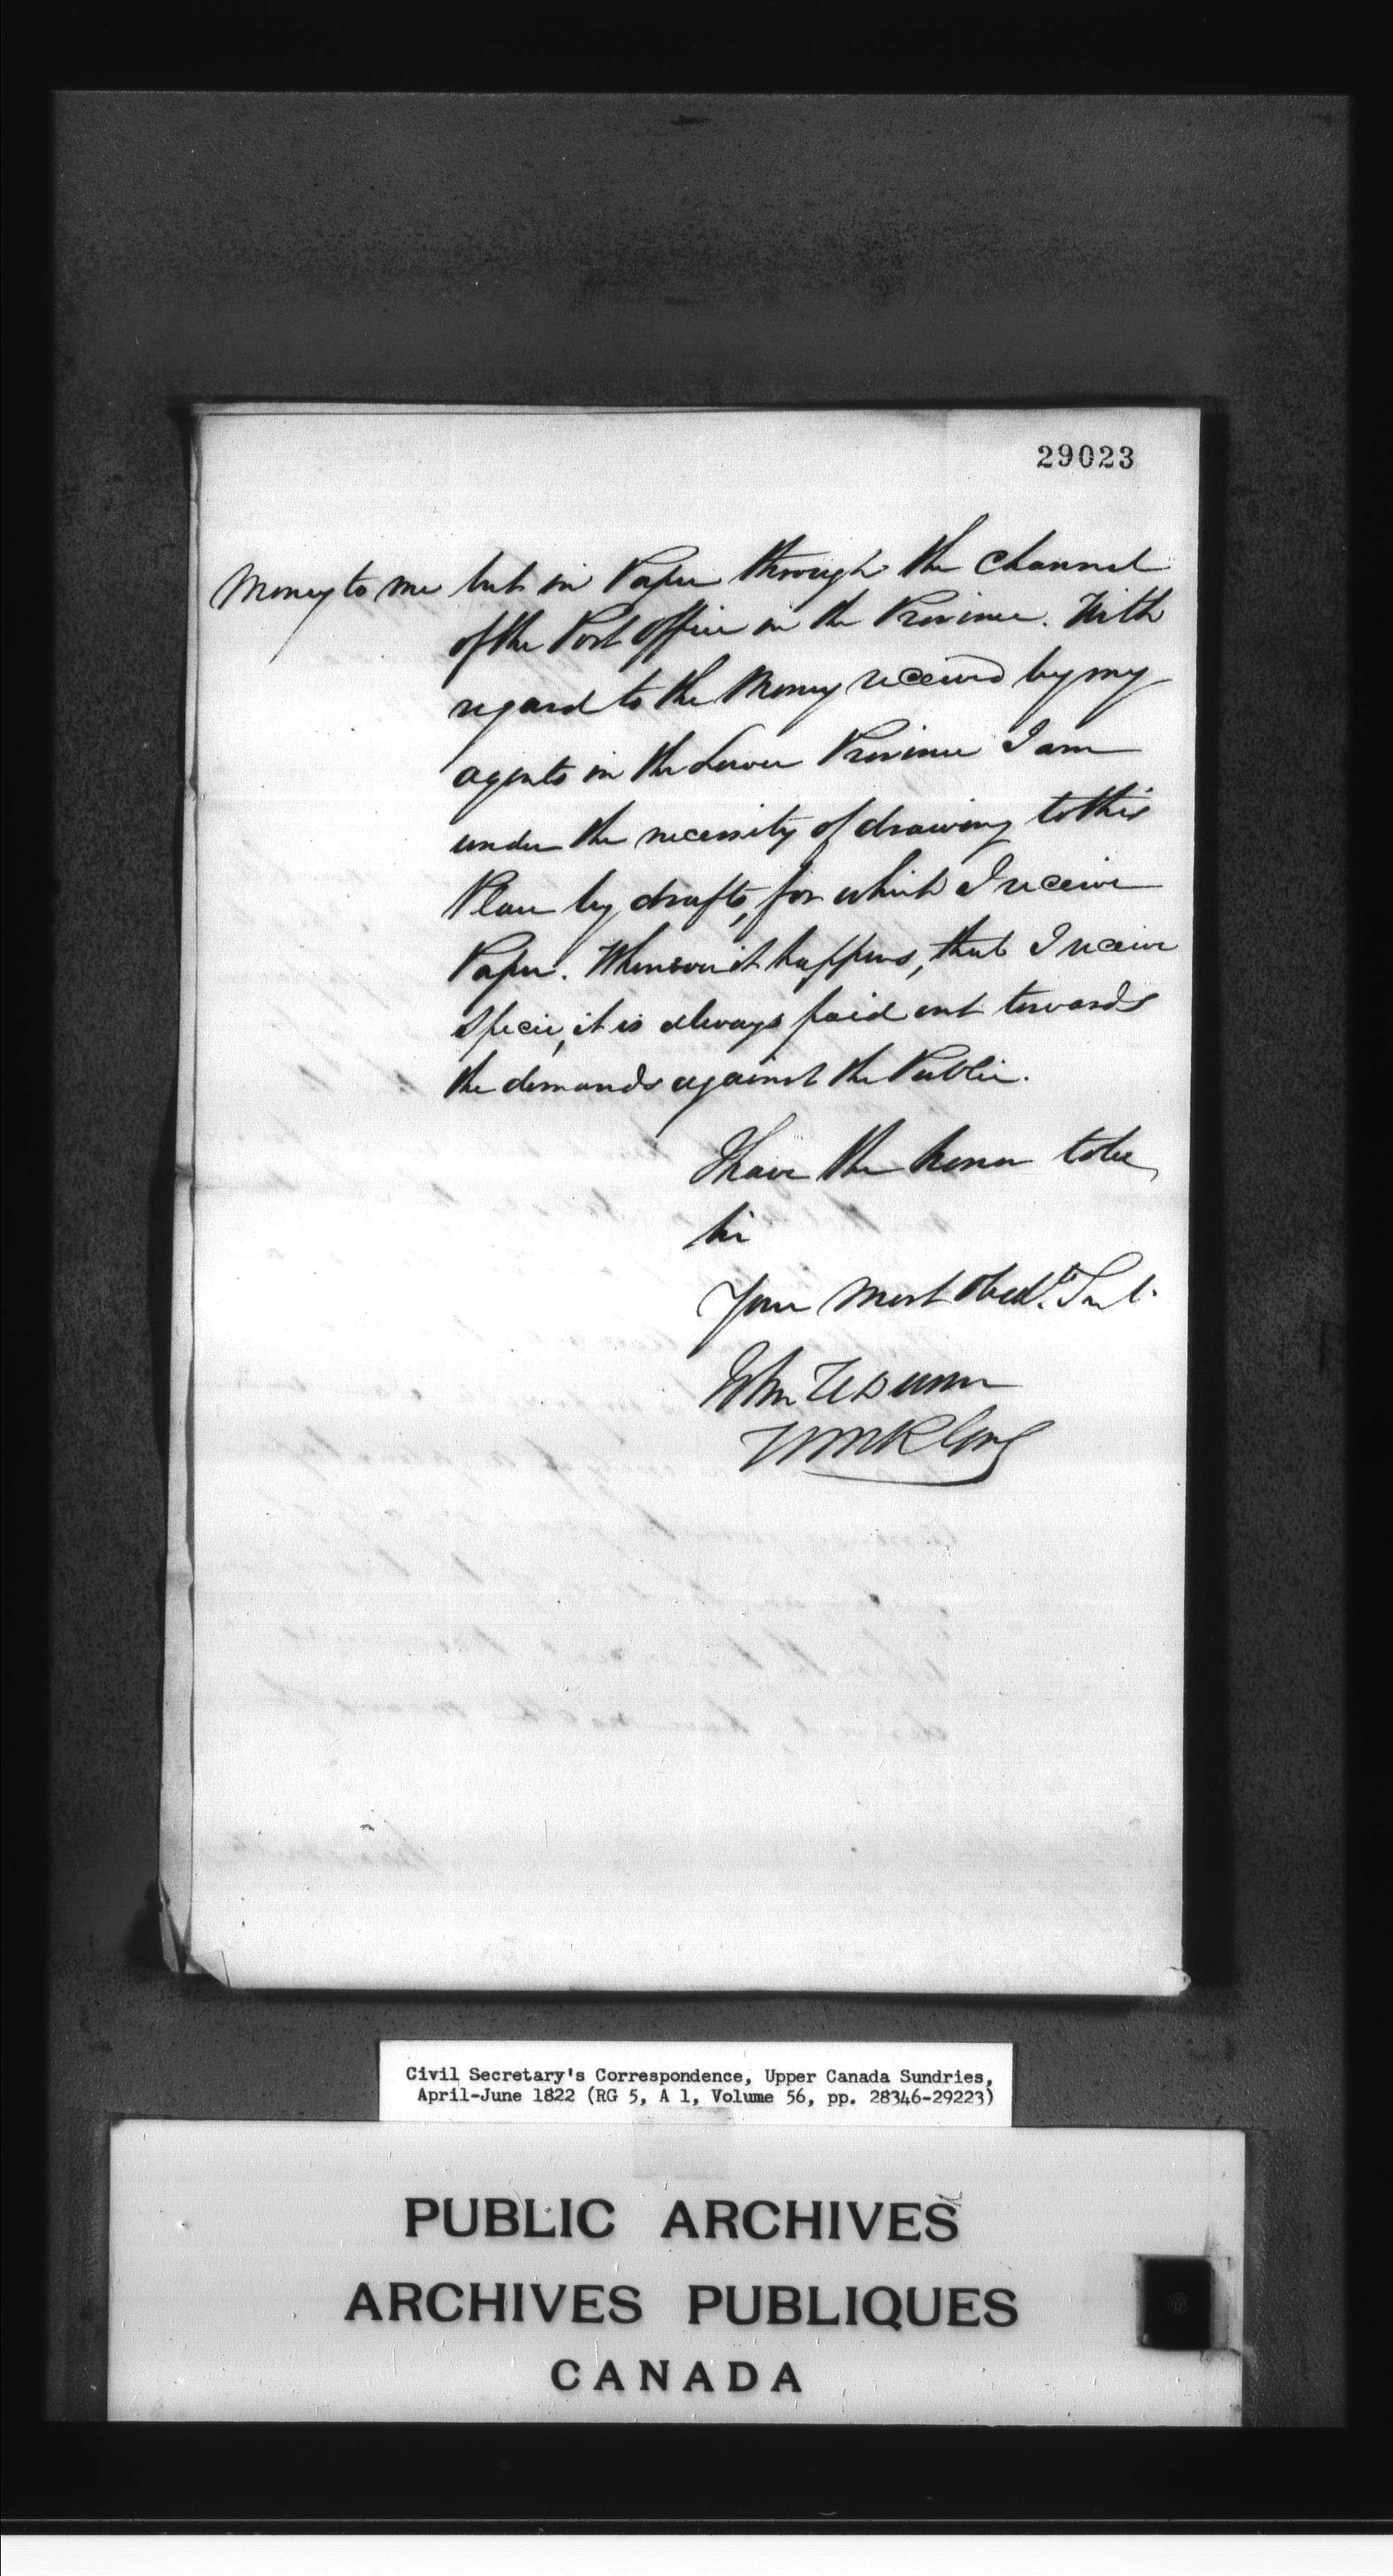 29023
Money to me but in Paper through the Channel
of the Post Office in the Province. With
regard to the Money received by my
agents in the Lower Province I am
under the necessity of drawing to this
Place by drafts, for which I receive
Paper. Whensoever it happens, that I receive
Specie, it is always paid out towards
the demands against the Public.
I have the honor to be,
Sir
Your most obedt. Servt.
John H Dunn
HMR Genl
Civil Secretary's Correspondence, Upper Canada Sundries,
April-June 1822 (RG 5, A 1, Volume 56, pp. 28346-29223)
PUBLIC ARCHIVES
ARCHIVES PUBLIQUES
CANADA